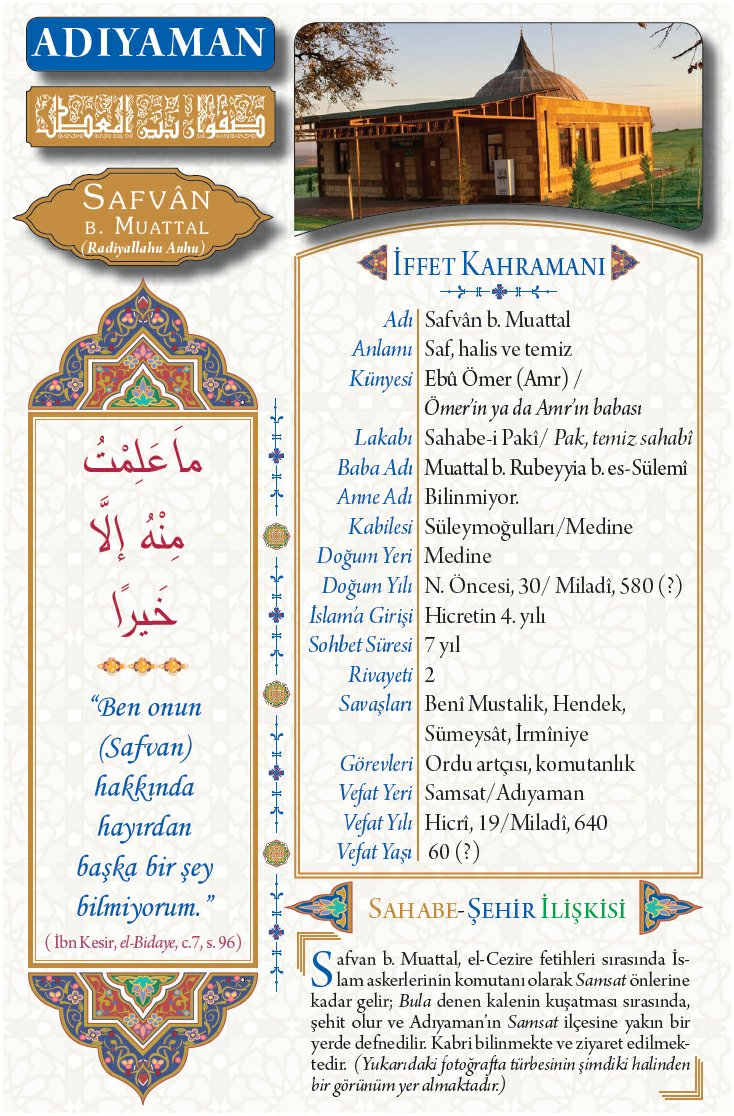 ADIYAMAN
صفوان بن المعطل
SAFVÂN
B. MUATTAL
(Radiyallahu Anhu)
مَا عَلِمْتُ
مِنْهُ إلَّا
خَيرًا
“Ben onun
(Safvan)
hakkında
hayırdan
başka bir şey
bilmiyorum.”
( İbn Kesir, el-Bidaye, c.7, s. 96)
İFFET KAHRAMANI
Adı Safvân b. Muattal
Anlamı Saf, halis ve temiz
Künyesi Ebû Ömer (Amr) /
Ömer’in ya da Amr’ın babası
Lakabı Sahabe-i Pakî/ Pak, temiz sahabî
Baba Adı Muattal b. Rubeyyia b. es-Sülemî
Anne Adı Bilinmiyor.
Kabilesi Süleymoğulları/Medine
Doğum Yeri Medine
Doğum Yılı N. Öncesi, 30/ Miladî, 580 (?)
İslam’a Girişi Hicretin 4. yılı
Sohbet Süresi 7 yıl
Rivayeti 2
Savaşları Benî Mustalik, Hendek,
Sümeysât, İrmîniye
Görevleri Ordu artçısı, komutanlık
Vefat Yeri Samsat/Adıyaman
Vefat Yılı Hicrî, 19/Miladî, 640
Vefat Yaşı 60 (?)
SAHABE-ŞEHİR İLİŞKİSİ
Safvan b. Muattal, el-Cezire fetihleri sırasında İs-
lam askerlerinin komutanı olarak Samsat önlerine
kadar gelir; Bula denen kalenin kuşatması sırasında,
şehit olur ve Adıyaman’ın Samsat ilçesine yakın bir
yerde defnedilir. Kabri bilinmekte ve ziyaret edilmek-
tedir. (Yukarıdaki fotoğrafta türbesinin şimdiki halinden
bir görünüm yer almaktadır.)